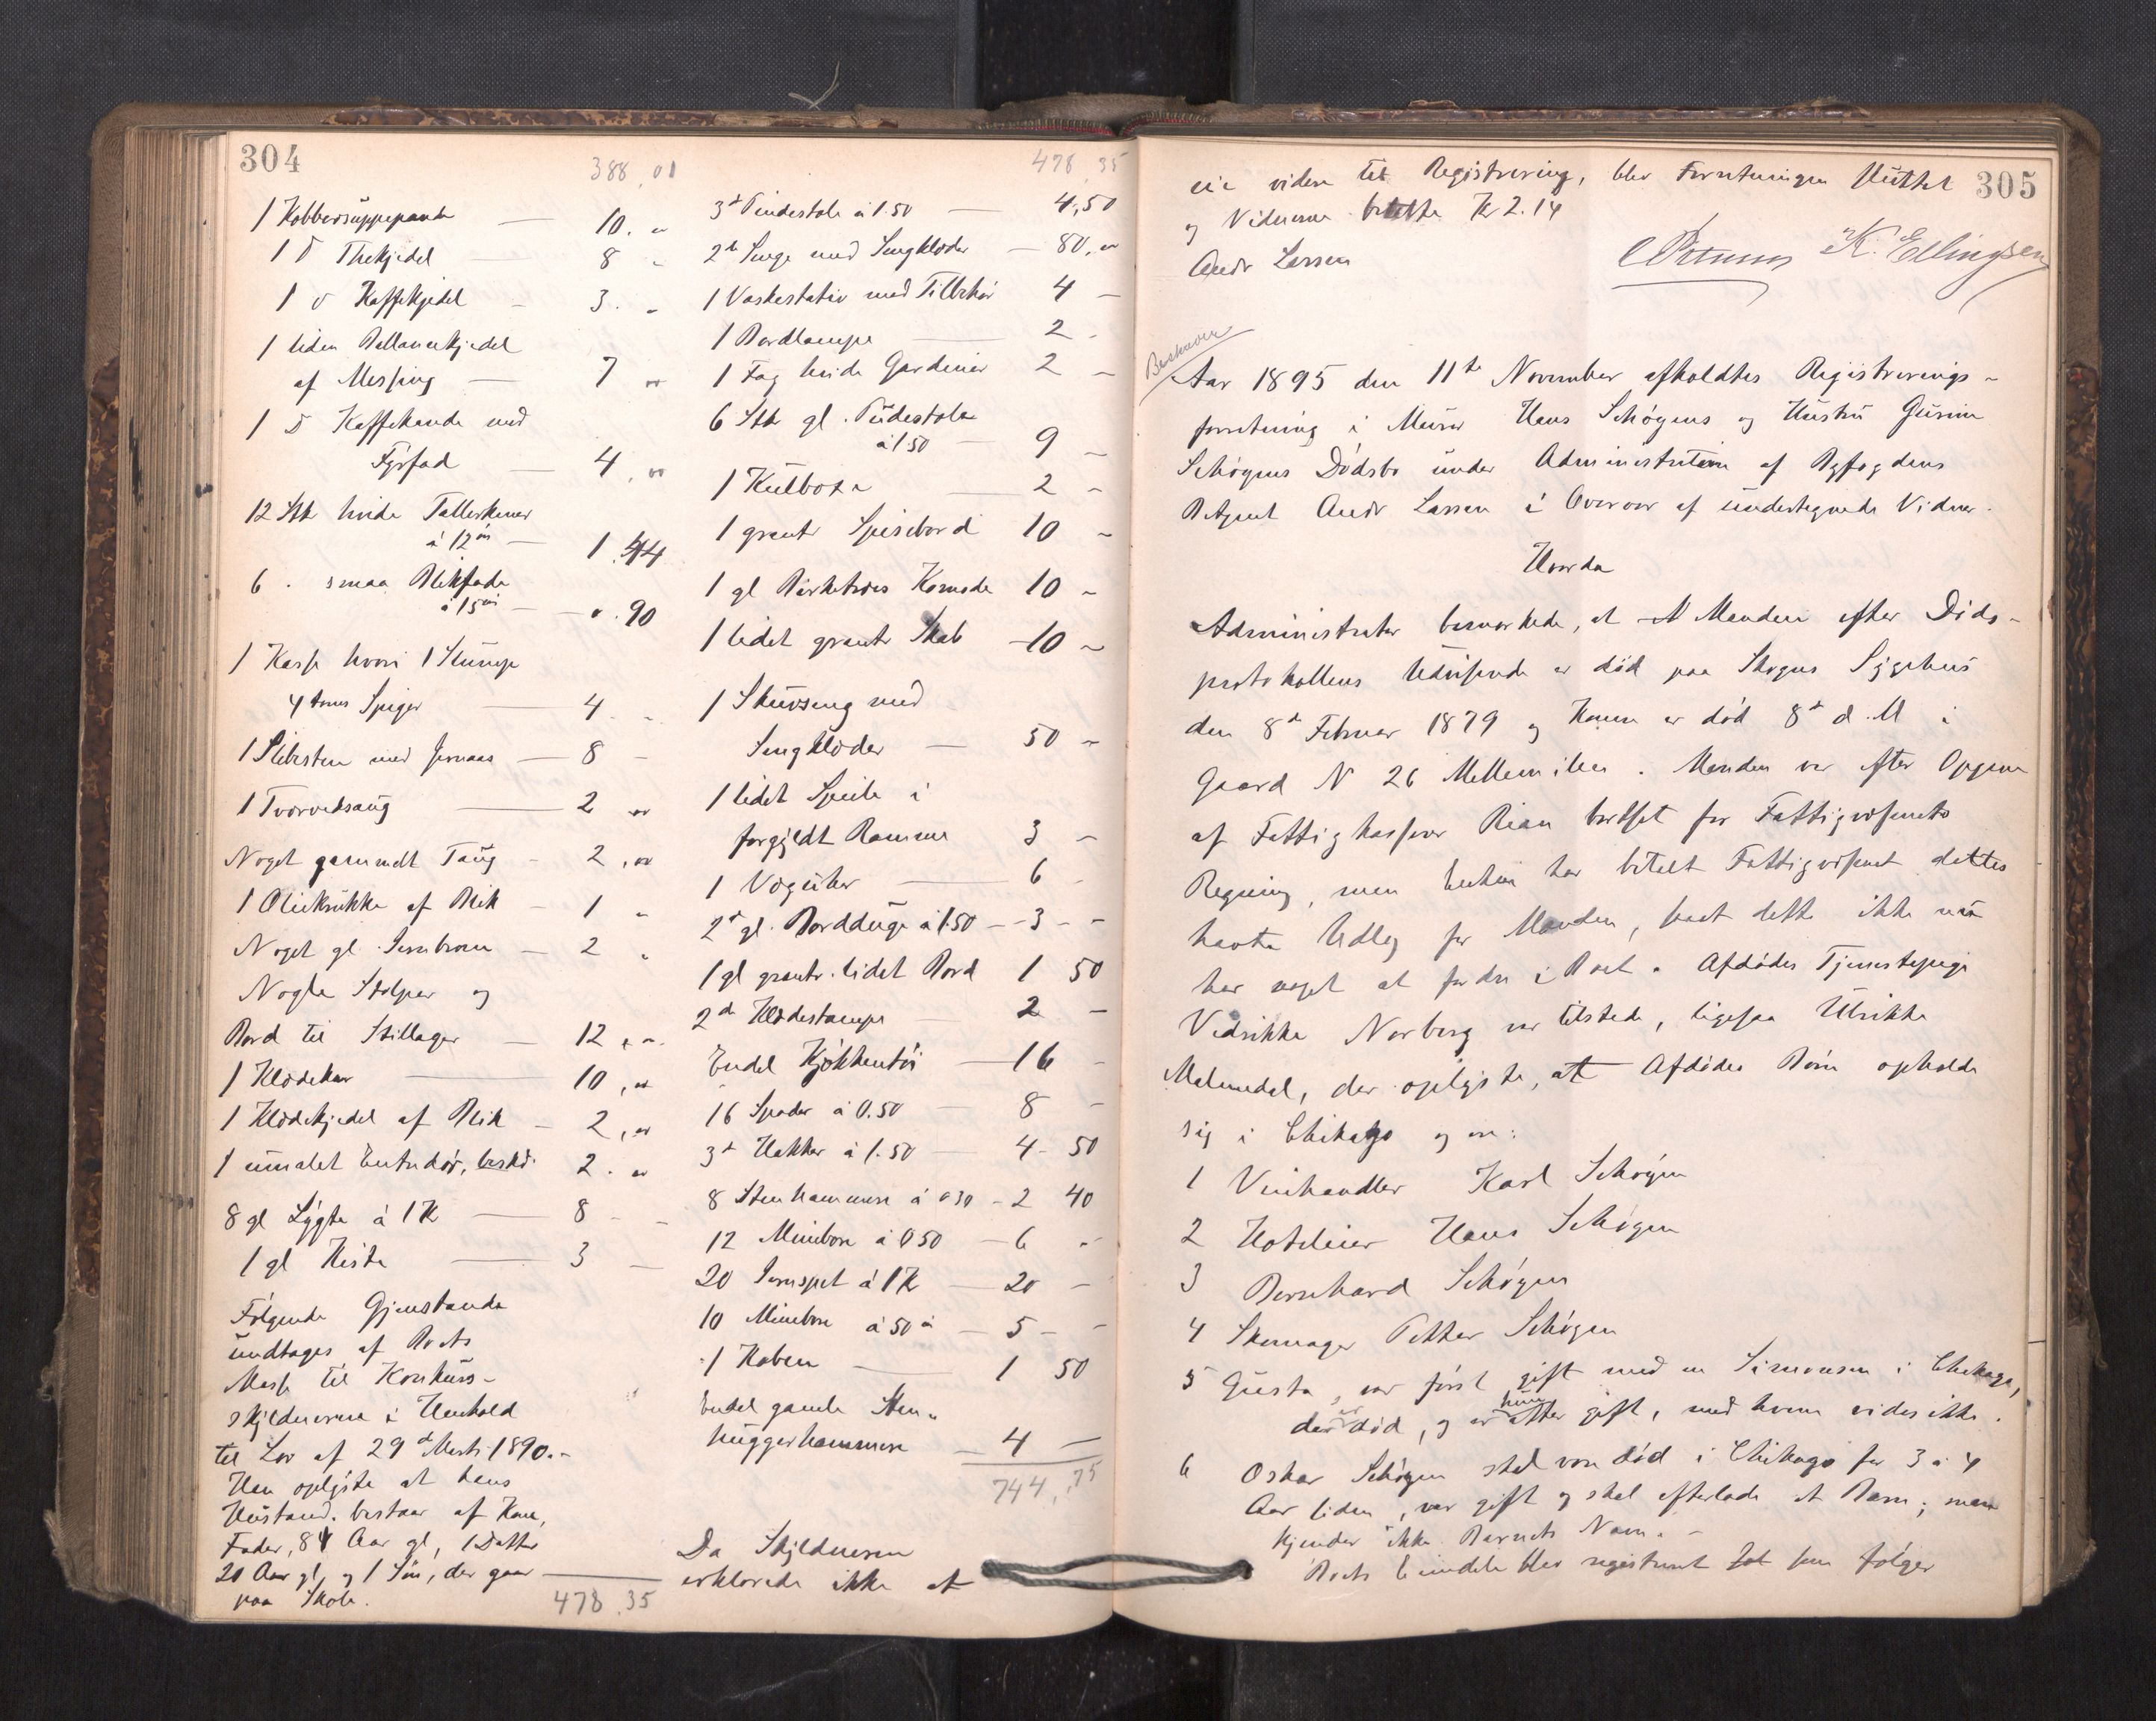 304
388,01
1 Kobbersuppepande — 10. "
1 D Thekjedel — 8 "
1 D Kaffekjedel — 3. "
1 liden Ballancekjedel
af Messing — 7 "
1 D Kaffekande med
Fyrfad — 4, "
12 Stk hvide Tallerkener
à 12 øre — 1.44
6 . smaa Blikfade
à 15 øre — ". 90
1 Kasse hvori 1 Stump
4 toms Spiger — 4. "
1 Slibesten med Jernaas — 8 –
1 Tværvedsaug — 2 "
Noget gammelt Taug – 2, "
1 Oliekrukke af Blik – 1 "
Noget gl. Jernkram — 2 "
Nogle Stolper og
Bord til Stillager — 12, "
1 Klædekar — 10, "
1 Klædekjedel af Blik – 2, "
1 umalet Entredør, beskd. 2. "
8 gl Lygte à 1 Kr — 8 –
1 gl Kiste — 3 —
Følgende Gjenstande
undtages af Boets
Masse til Konkurs-
skyldnerne i Henhold
til Lov af 29d Marts 1890.–
Han oplyste at hans
Husstand. bestaar af Kone,
Fader, 84 Aar gl, 1 Datter
20 Aar gl, og 1 Søn, der gaar
paa Skole.
478.35
478.35
3d Pindestole à 1.50 — 4,50
2de Senge med Sengklæder — 80, "
1 Vaskestativ med Tilbehør 4 –
1 Bordlampe 2 –
1 Fag hvide Gardiner 2 –
6 Stk gl. Pudestole
à 1 50 — 9 –
1 Kulboxe — 2 –
1 grantr Spisebord 10 –
1 gl Birketræs Komode 10 –
1 lidet grantr Skab – 10 –
1 Skuvseng med
Sengklæder — 50 –
1 lidet Speile i
forgyldt Ramme 3 –
1 Væguhr — 6 –
2d gl. Bordduge à 1.50 – 3 – –
1 gl grantr. lidet Bord 1 50
2de Klædestampe — 2 –
Endel Kjøkkentøi — 16 –
16 Spader à 0.50 — 8 –
3d Hakker à 1.50 4 – 50
8 Stenhammere à 0 30 – 2 40
12 Minebore à 0 50 – 6 "
20 Jernspet à 1 Kr — 20 –
10 Minebore à 50 ø — 5 – –
1 Kaben — 1 50
Endel gamle Sten-
huggerhammere — 4 —
744,75
Da Skyldneren
erklærede ikke at
305
eie videre til Registrering, blev Forretningen sluttet
og Vidnerne betalte Kr 2.14
Andr Larsen K. Ellingsen
Beskaaren
Aar 1895 den 11te November afholdtes Registrerings-
forretning i Murer Hans Schøyens og Hustru Gurine
Schøyens Dødsbo under Administration af Byfogdens
Betjent Andr Larsen i Overvær af undertegnede Vidner.
Hvorda
Administrator bemærkede, at Manden efter Døds-
protokollens Udvisende er død paa Skogns Sygehus
den 8d Februar 1879 og Konen er død 8d d. M i
Gaard N 26 Mellemilen . Manden var efter Opgave
af Fattigkasserer Rian bortsat for Fattigvæsenets
Regning, men Enken har betalt Fattigvæsenet dettes
havte Udlæg for Manden, saat dette ikke nu
har noget at fordre i Boet. Afdødes Tjenestepige
Vedrikke Norberg var tilstede, ligesaa Ulrikke
Malmedal, der oplyste, at Afdødes Børn opholde
sig i Chikago og ere:
1 Vinhandler Karl Schøyen
2 Hoteleier Hans Schøyen
3 Bernhard Schøyen
4 Skomager Petter Schøyen
5 Gusta, var først gift med en Simonsen i Chikago,
der er død, og er hun atter gift, med hvem vides ikke.
6 Oskar Schøyen skal være død i Chikago for 3 à 4
Aar siden, var gift og skal efterlade et Barn; man
kjender ikke Barnets Navn. –
Boets Eiendele blev registreret som følger